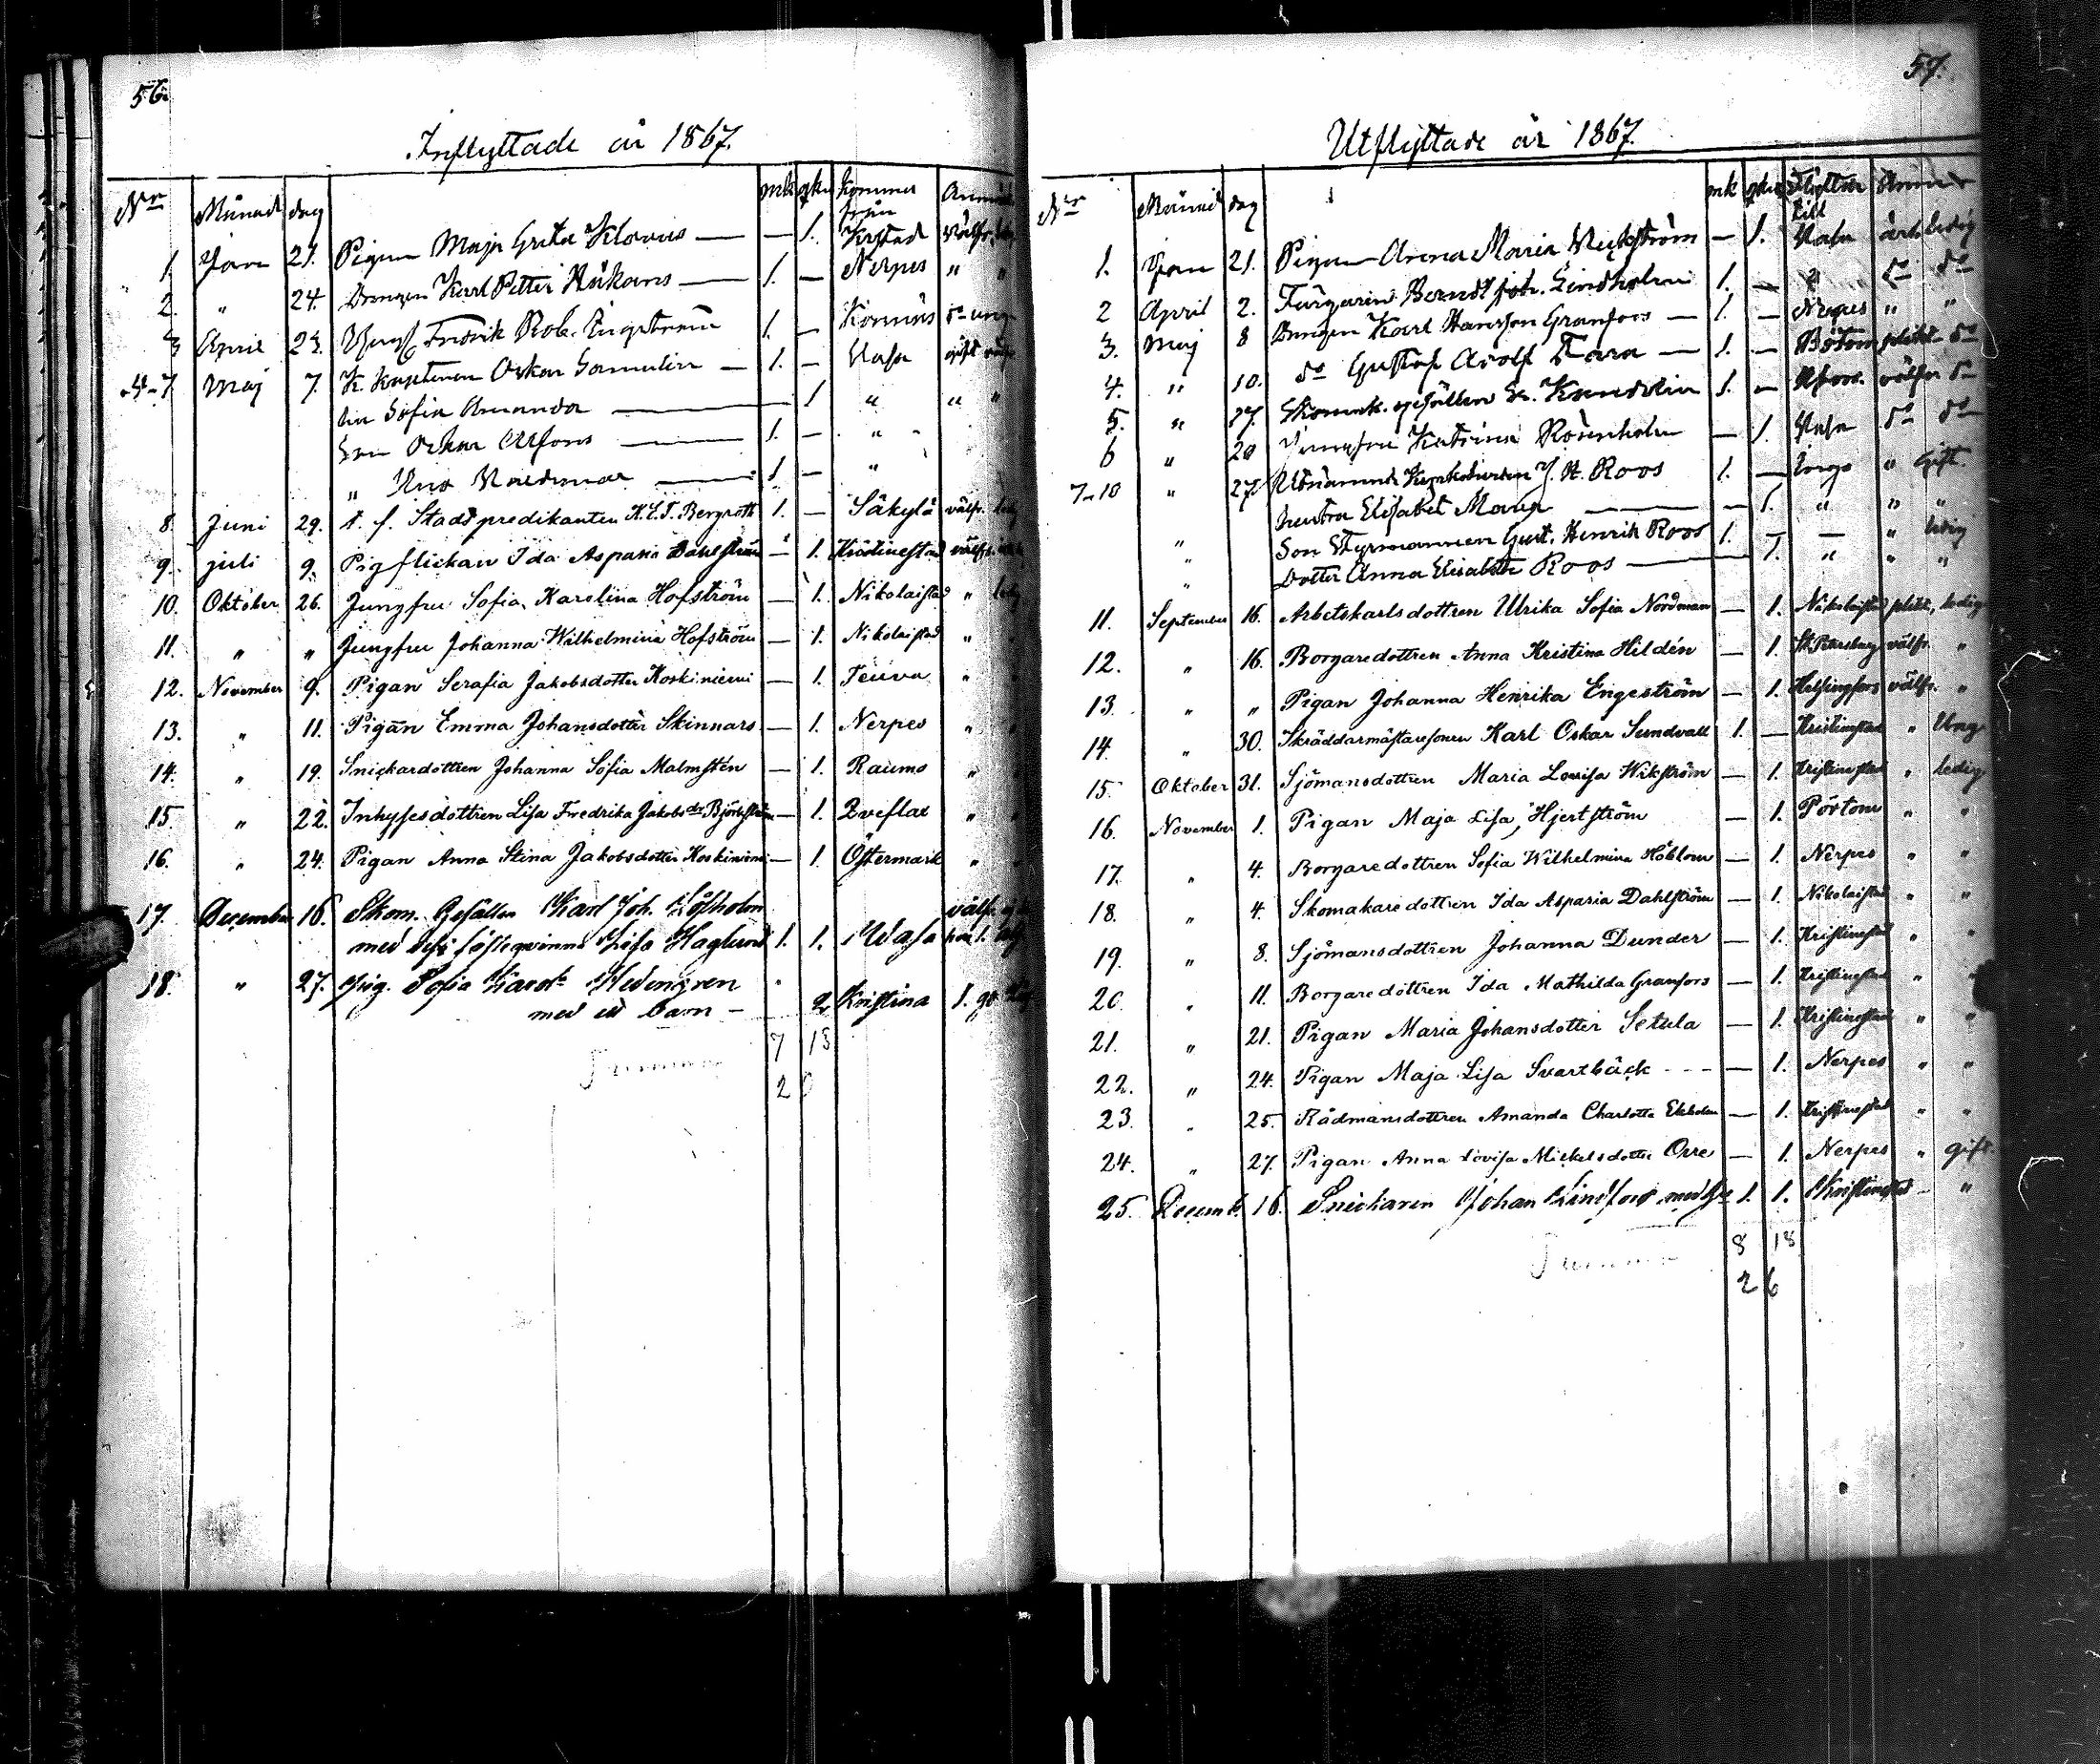 56.
Inflyttade år 1867.
Nr Månad dag mk qk Kommer från
1. Jan 21. Pigan Maja Greta Klavus — — 1. Krstad välfr.
2. " 24. Drengen Karl Petter Håkans — 1. — Nerpes " "
3 April 23. Fredrik Rob. Engström 1. — Korsnäs do ung
4-7 Maj 7. Kaptenen Oskar Samulin — 1. — Vasa gift
Sofia Amanda — 1 " " "
Son Oskar Alfons — 1. — "
" Waldemar — 1 — "
8. Juni 29. t. f. Stadspredikanten K.L.T. Bergroth 1. — Säkylä välfr. ledig
9. juli 9. Pigflickan Ida Asparia Dahlström — 1. Kristinestad välfr.
10. Oktober 26. Jungfru Sofia Karolina Hofström — 1. Nikolaistad " ledig
11. " " Jungfru Johanna Wilhelmina Hofström — 1. Nikolaistad "
12. November 9. Pigan Serafia Jakobsdotter Koskiniemi — 1. Teuva "
13. " 11. Pigan Emma Johansdotter Skinnars — 1. Nerpes "
14. " 19. Snickardottren Johanna Sofia Malmstén — 1. Raumo "
15. " 22. Inhysesdottren Lisa Fredrika Jakobsdr Björkström — 1. Qveflax "
16. " 24. Pigan Anna Stina Jakobsdotter Koskiniemi — 1. Östermark "
17. December 16. Skom. Gesällen Karl Joh. Löfholm välfr.
med dess fästeqvinna Lisa Haglund 1. 1. Wasa
18. " 27. Pig. Sofia Hedengren
med ett barn — 2 Kristina
7 13
Summa
2 0
57.
Utflyttade år 1867.
Nr Månad dag mk qk Flyttar till
1. Jan 21. Pigan Anna Maria Wickström — 1. Vasa ledig
2 April 2. Färgaren Berndt Joh. Lindholm 1. — do do
3. Maj 8 Drengen Karl Hansson Granfors — 1. — Nerpes " "
4. " 10. do Gustaf Adolf Fara — 1. — Bötom do
5. " 27. Skomak. gesällen 1. — välfr do
6 " 20 Jungfru Katrina Rosenholm — 1. Vasa do do
7-10 " 27. J. H. Roos 1. — " Gift
hustru Elisabet — — 1. " " "
" Son Styrmannen Gust. Henrik Roos 1. — — " ledig
" Dotter Anna Elisabeth Roos — 1. " " "
11. September 16. Arbetskarlsdottren Ulrika Sofia Nordman — 1. Nikolaistad ledig
12. " 16. Borgaredottren Anna Kristina Hildén — 1. St. Petersburg välfr. "
13. " " Pigan Johanna Henrika Engeström — 1. Helsingfors välfr. "
14. " 30. Skräddarmästaresonen Karl Oskar Sundvall 1. — Kristinestad " Ung
15. Oktober 31. Sjömansdottren Maria Lovisa Wikström — 1. Kristinestad " ledig
16. November 1. Pigan Maja Lisa Hjertström — 1. Pörtom " "
17. " 4. Borgaredottren Sofia Wilhelmina Höblom — 1. Nerpes " "
18. " 4. Skomakaredottren Ida Asparia Dahlström — 1. Nikolaistad " "
19. " 8. Sjömansdottren Johanna Dunder — 1. Kristinestad " "
20. " 11. Borgaredottren Ida Mathilda Granfors — 1. Kristinestad " "
21. " 21. Pigan Maria Johansdotter Setula — 1. Kristinestad " "
22. " 24. Pigan Maja Lisa Svartbäck - - - — 1. Nerpes " "
23. " 25. Rådmansdottren Amanda Charlotta Ekholm — 1. Kristinestad " "
24. " 27. Pigan Anna Lovisa Mickelsdotter Orre — 1. Nerpes " gift.
25. Decemb. 16. Snickaren Johan Lindfors med 1. 1. Kristinestad — "
8 18
Summa
2 6